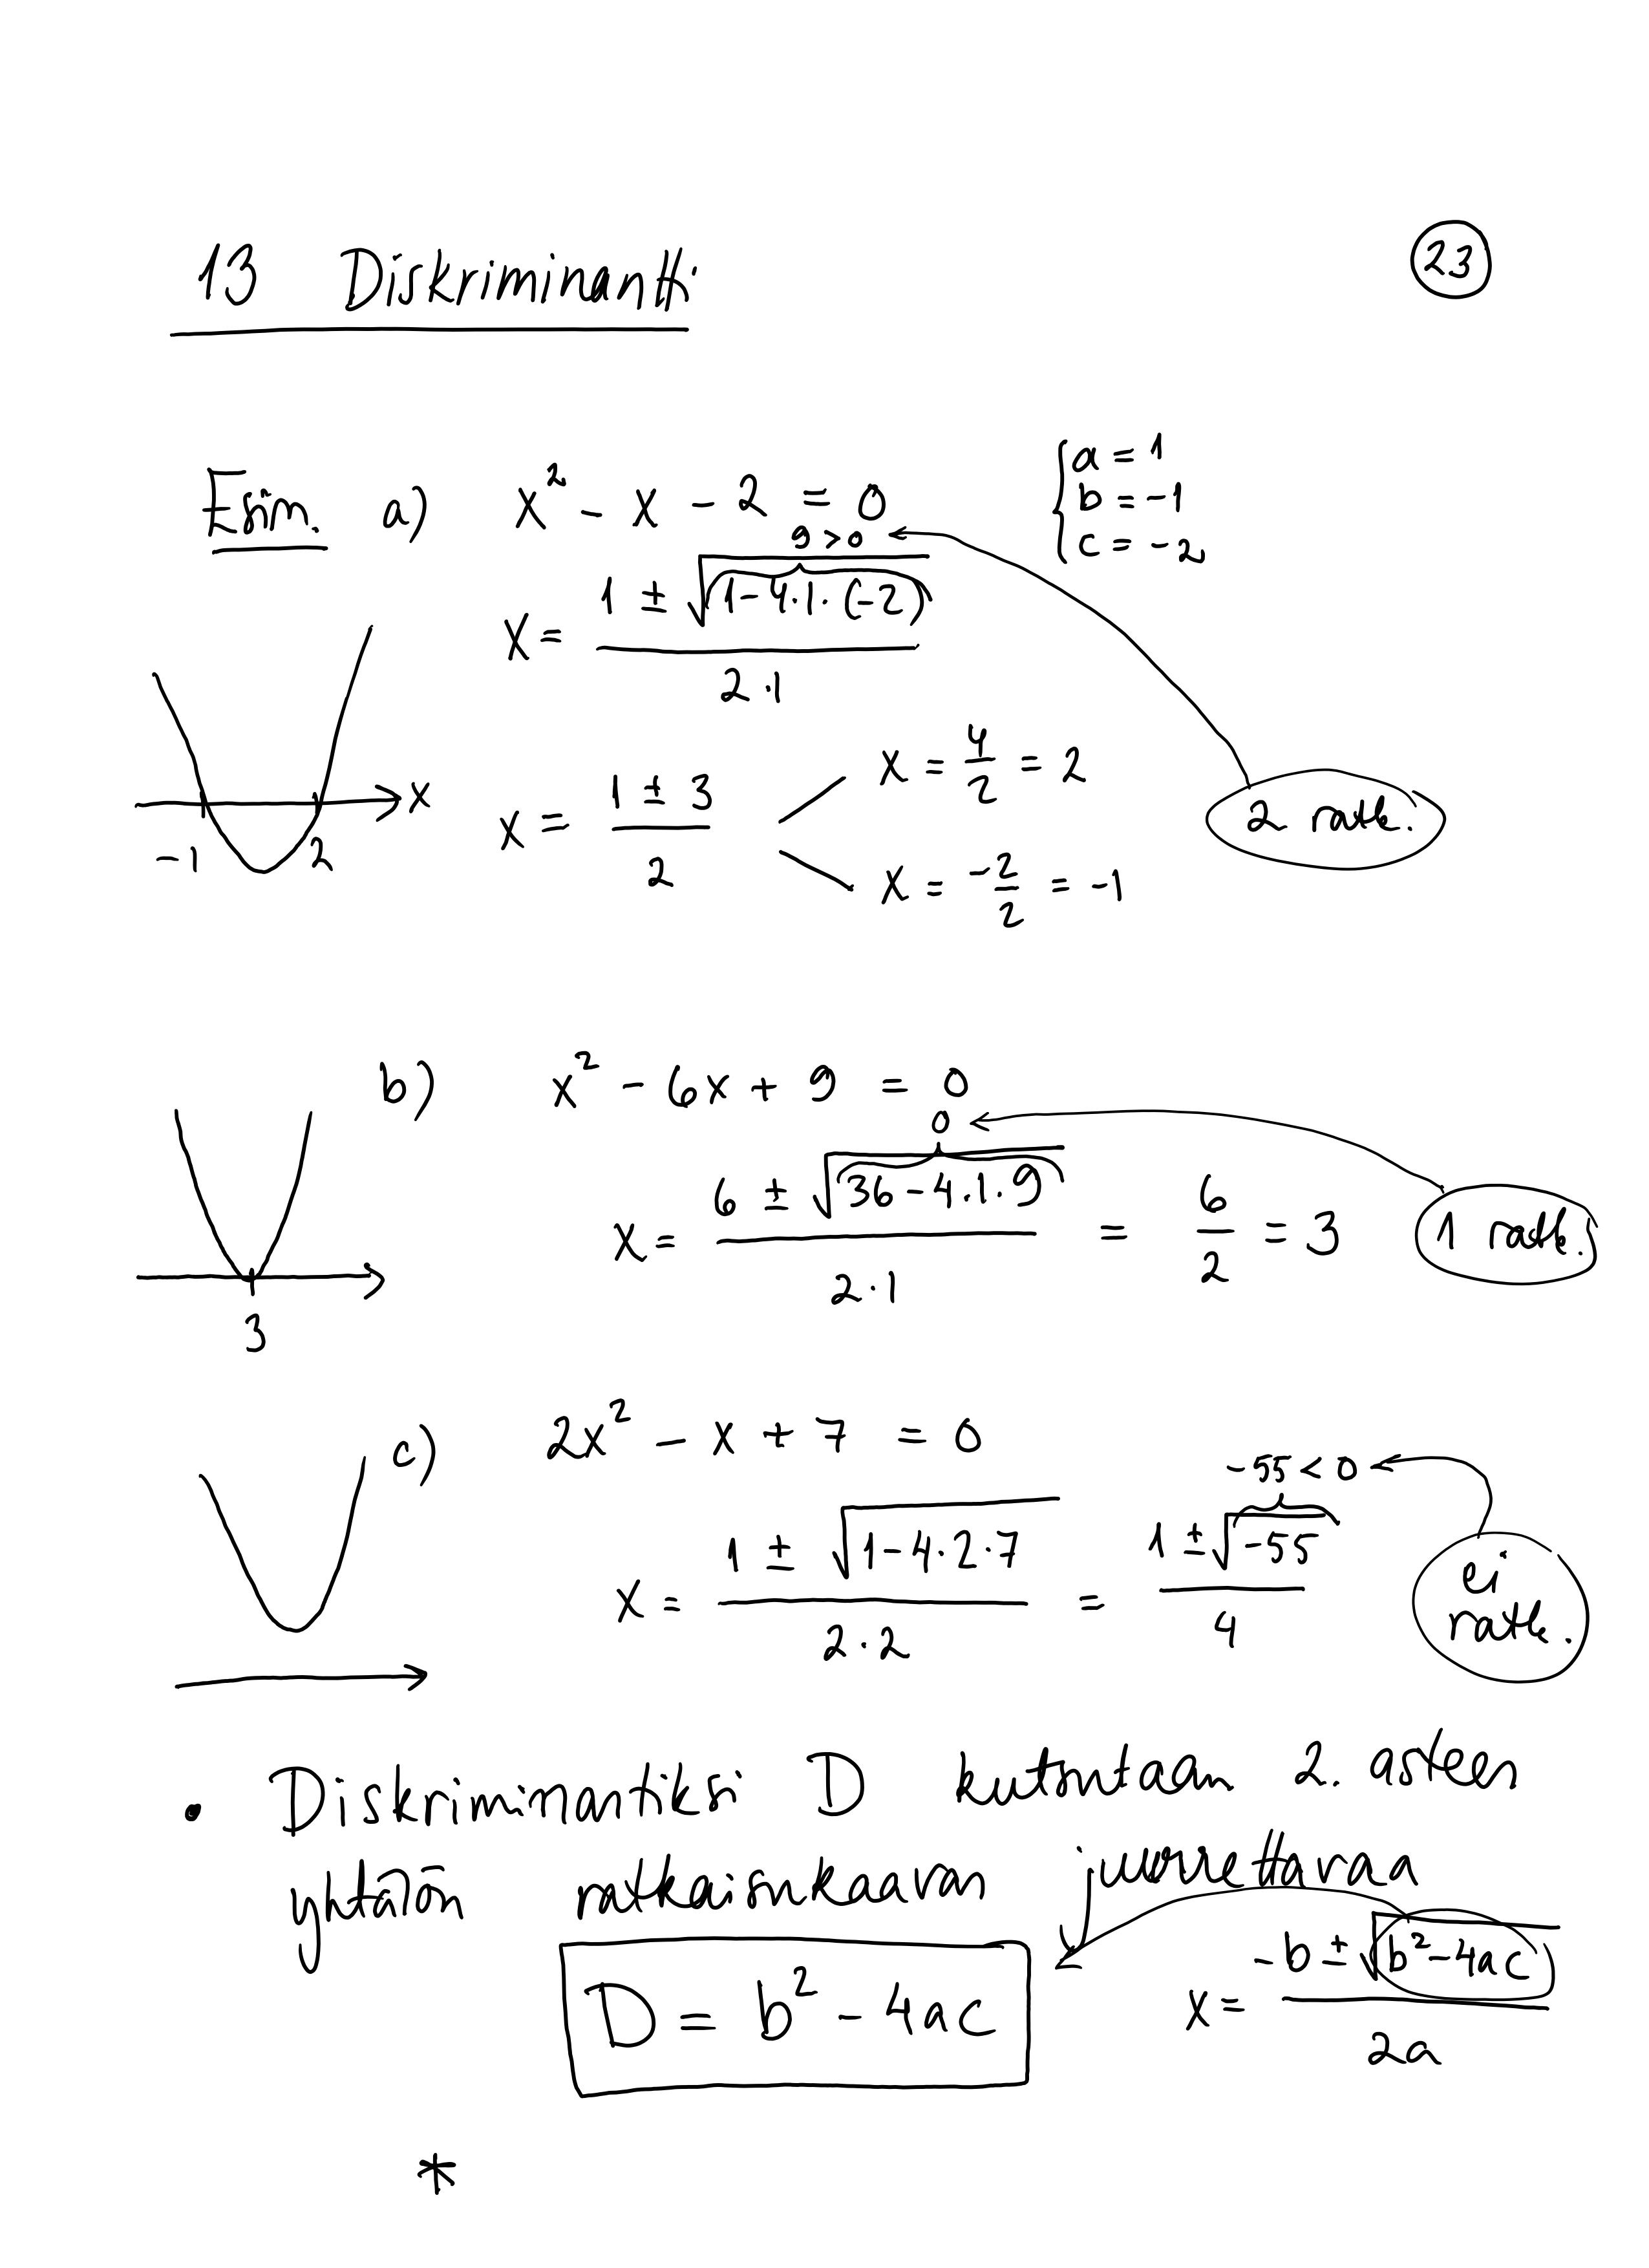 13 Diskriminantti
23
Esim. a) x² - x - 2 = 0
{ a = 1
b = -1
c = -2
9 > 0
x = (1 ± √(1-4·1·(-2))) / (2·1)
x = (1 ± 3) / 2
x = 4/2 = 2
x = -2/2 = -1
2 ratk.
x
-1 2
b) x² - 6x + 9 = 0
0
x = (6 ± √(36-4·1·9)) / (2·1) = 6/2 = 3
1 ratk.
3
c) 2x² - x + 7 = 0
-55 < 0
x = (1 ± √(1-4·2·7)) / (2·2) = (1 ± √-55) / 4
ei
ratk.
• Diskriminantiksi D kutsutaan 2. asteen
yhtälön ratkaisukaavan juurrettavaa
D = b² - 4ac
x = (-b ± √(b²-4ac)) / 2a
*